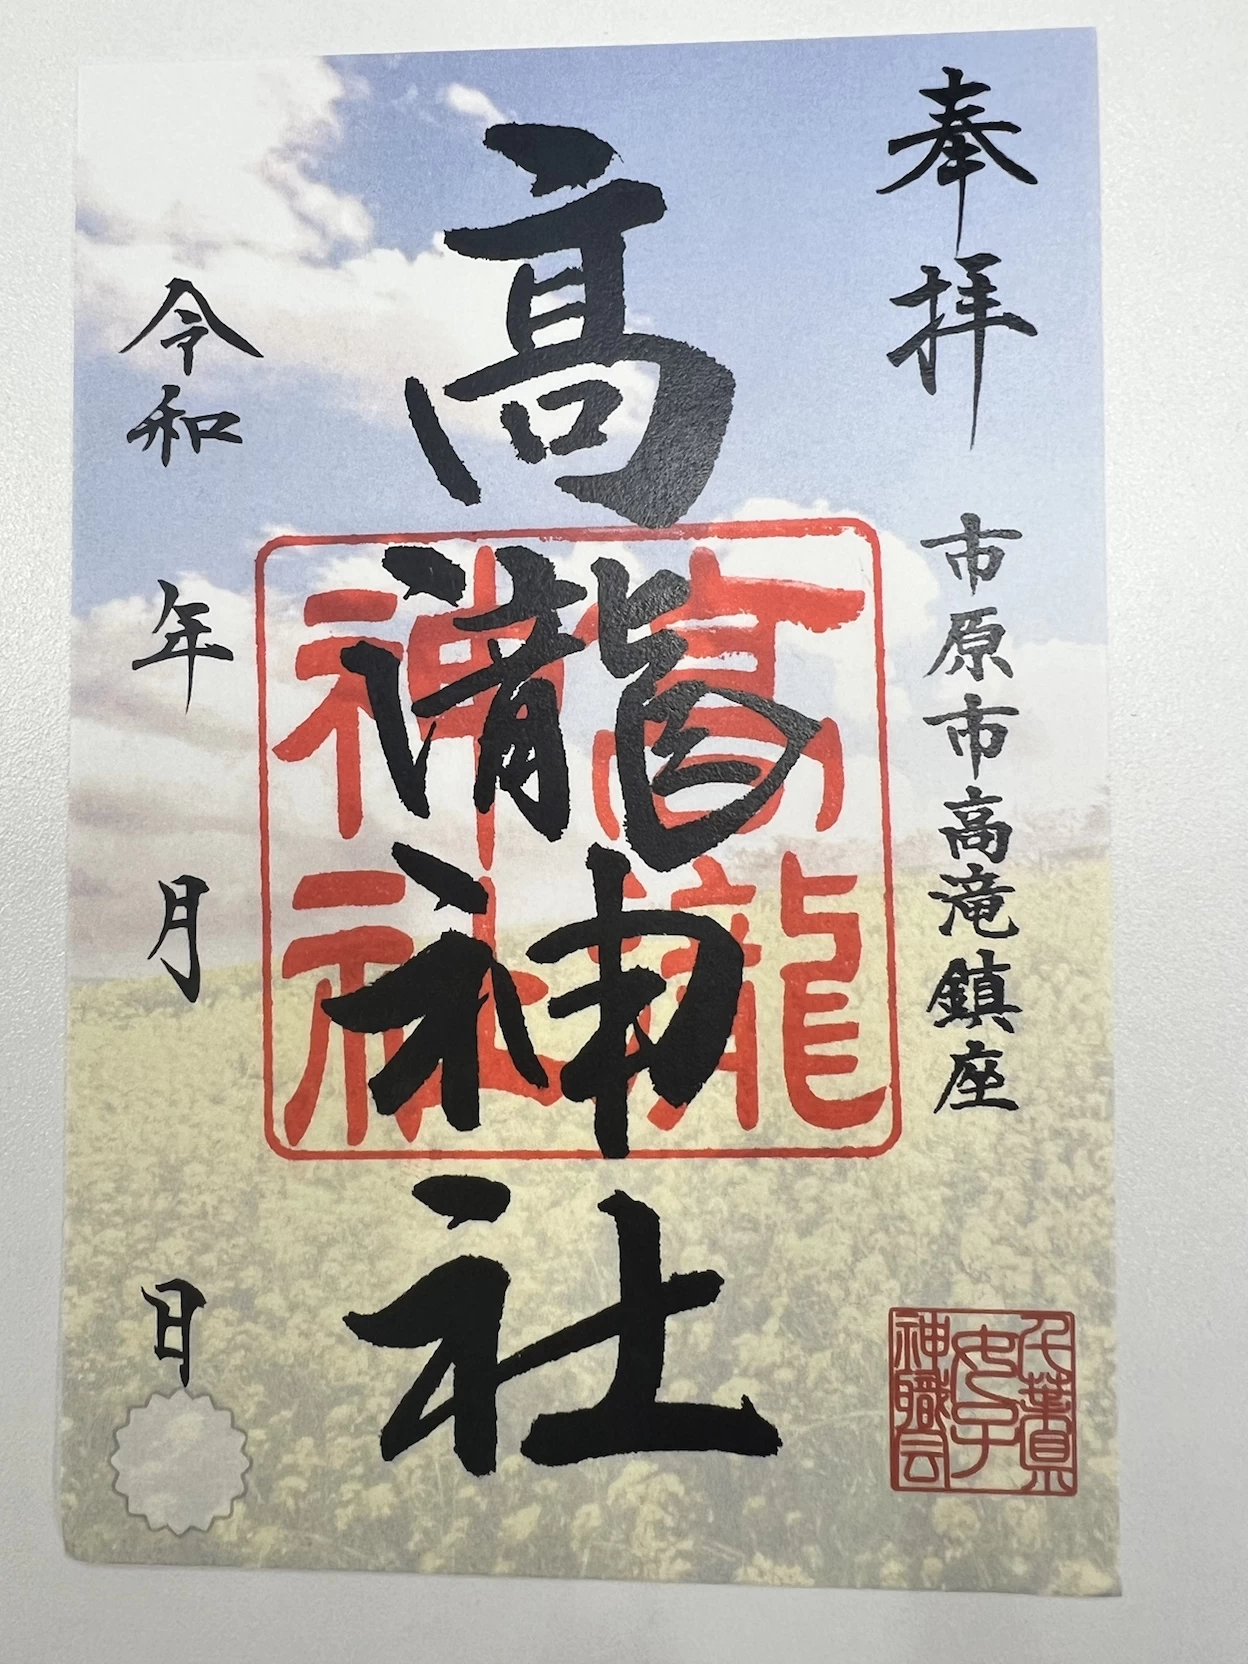 奉拝
市原市高滝鎮座
高瀧神社
高瀧
神社
令和　年　月　日
千葉県
女子
神職会